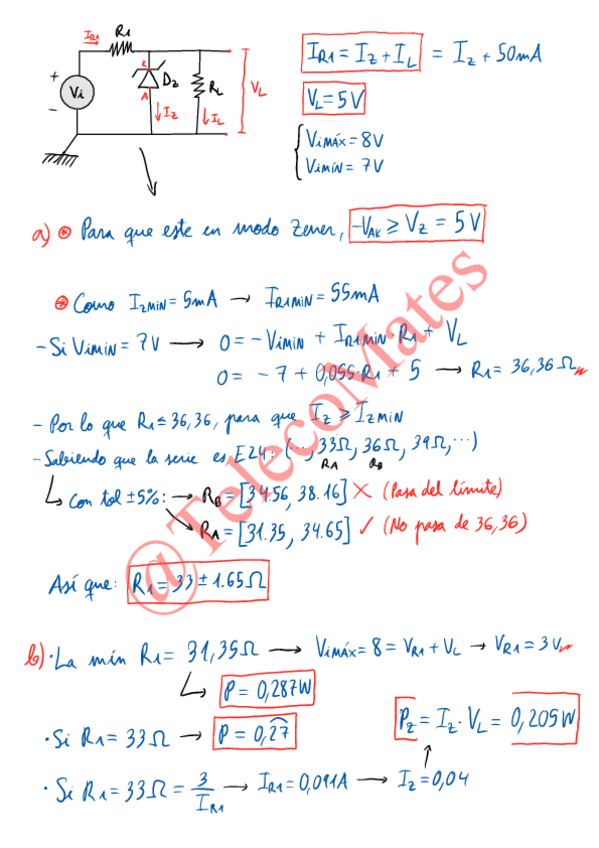 I_R1 R1
I_R1 = I_Z + I_L = I_Z + 50mA
+ Vi -
K A D_Z I_Z
R_L I_L V_L
V_L = 5V
Vimáx = 8V
Vimín = 7V
a) Para que este en modo zener, -V_AK ≥ V_Z = 5V
Como I_ZMIN = 5mA → I_R1MIN = 55mA
- Si Vimin = 7V → 0 = -Vimin + I_R1min · R1 + V_L
0 = -7 + 0,055·R1 + 5 → R1 = 36,36 Ω
- Por lo que R1 ≤ 36,36, para que I_Z ≥ I_ZMIN
- Sabiendo que la serie es E24: (..., 33Ω, 36Ω, 39Ω, ...)
R_A R_B
↳ Con tol ±5%: → R_B = [34.56, 38.16] ✗ (Pasa del límite)
R_A = [31.35, 34.65] ✓ (No pasa de 36,36)
Así que: R1 = 33 ± 1.65Ω
b) · La mín R1 = 31,35Ω → Vimáx = 8 = V_R1 + V_L → V_R1 = 3V
↳ P = 0,287W
· Si R1 = 33Ω → P = 0,27
P_Z = I_Z · V_L = 0,205W
· Si R1 = 33Ω = 3/I_R1 → I_R1 = 0,091A → I_Z = 0,04
@TelecoMates